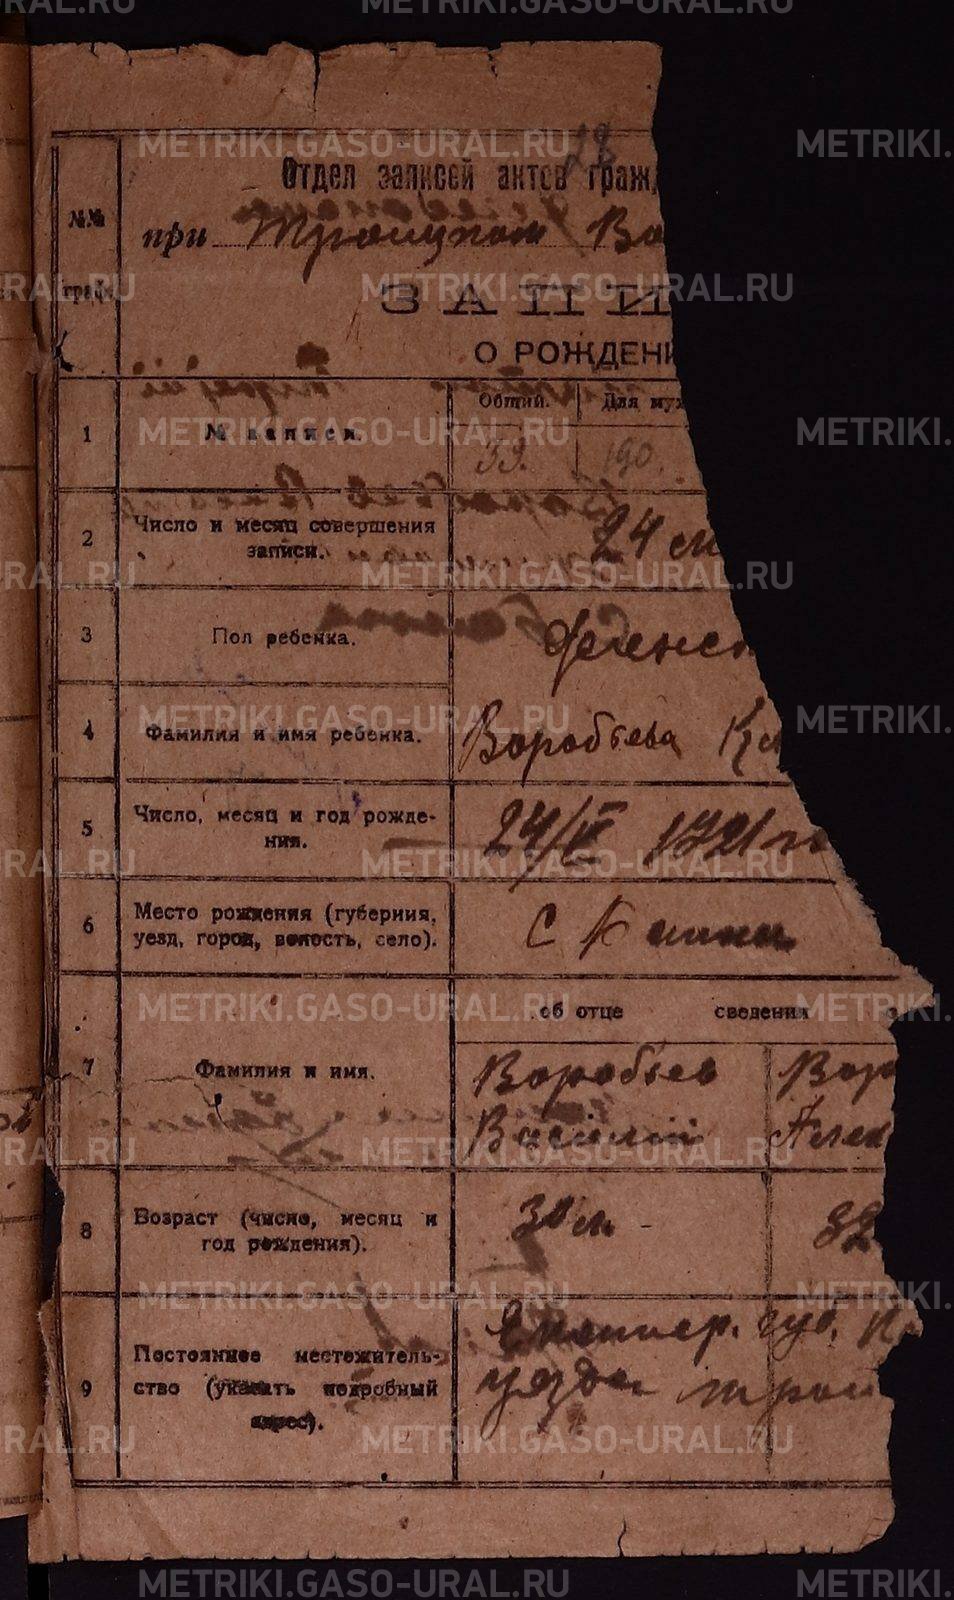 28
Отдел записей актов граж
№№ граф.
при Троицком Во
ЗАПИ
О РОЖДЕНИ
Общий. Для муж
1 № записи. 53. 190.
2 Число и месяц совершения записи. 24 
3 Пол ребенка. Женск
4 Фамилия и имя ребенка. Воробьева
5 Число, месяц и год рождения. 24/VI 1921 г
6 Место рождения (губерния, уезд, город, волость, село). С
об отце сведения о
7 Фамилия и имя. Воробьев Вор
Василий Алек
8 Возраст (число, месяц и год рождения). 30 л. 32
9 Постоянное местожительство (указать подробный адрес). Екатер. губ. К
уезда трои
METRIKI.GASO-URAL.RU